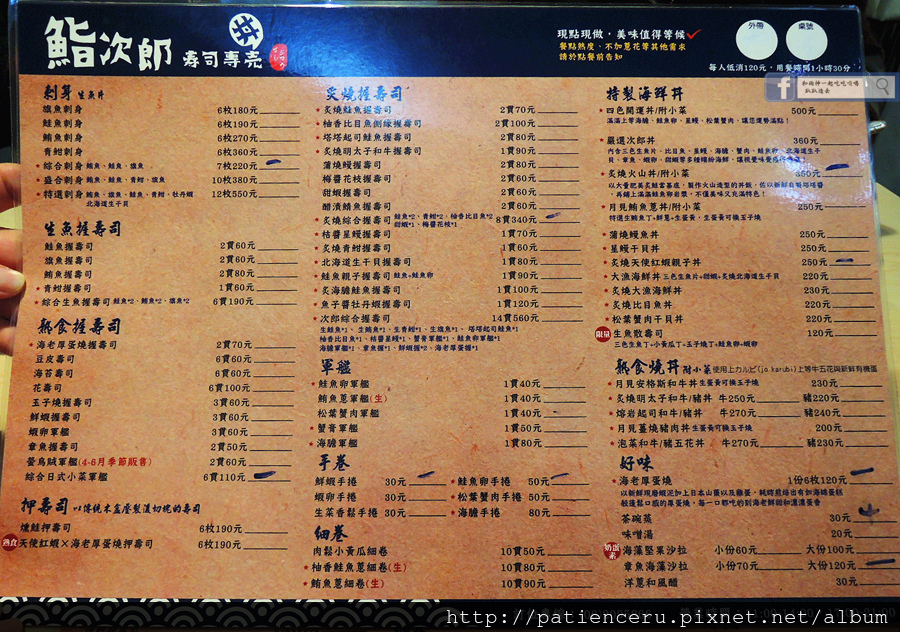 鮨次郎 壽司專売
丼
現點現做，美味值得等候
餐點熟度、不加蔥花等其他需求
請於點餐前告知
外帶
桌號
每人低消120元，用餐時間1小時30分
刺身 生魚片
旗魚刺身 6枚180元
鮭魚刺身 6枚190元
鮪魚刺身 6枚270元
青魽刺身 6枚360元
綜合刺身 鮪魚、鮭魚、旗魚 7枚220元
盛合刺身 鮪魚、鮭魚、青魽、旗魚 10枚380元
特選刺身 鮪魚、旗魚、鮭魚、青魽、牡丹蝦 12枚550元
北海道生干貝
生魚握壽司
鮭魚握壽司 2貫60元
旗魚握壽司 2貫60元
鮪魚握壽司 2貫80元
青魽握壽司 1貫60元
綜合生魚握壽司 鮭魚*2、鮪魚*2、旗魚*2 6貫190元
熟食握壽司
海老厚蛋燒握壽司 2貫70元
豆皮壽司 6貫60元
海苔壽司 6貫60元
花壽司 6貫100元
玉子燒握壽司 3貫60元
鮮蝦握壽司 3貫60元
蝦卵軍艦 3貫60元
章魚握壽司 2貫50元
螢烏賊軍艦(4-6月季節販售) 2貫60元
綜合日式小菜軍艦 6貫110元
押壽司 以傳統木盒壓製濃切塊的壽司
燻鮭押壽司 6枚190元
熟食 天使紅蝦×海老厚蛋燒押壽司 6枚190元
炙燒握壽司
炙燒鮭魚握壽司 2貫70元
柚香比目魚側緣握壽司 2貫100元
塔塔起司鮭魚握壽司 2貫80元
炙燒明太子和牛握壽司 1貫90元
蒲燒鰻握壽司 2貫60元
梅醬花枝握壽司 2貫60元
甜蝦握壽司 2貫60元
醋漬鯖魚握壽司 2貫60元
炙燒綜合握壽司 鮭魚*2、青魽*2、柚香比目魚*2 8貫340元
甜蝦*1、梅醬花枝*1
桔醬星鰻握壽司 1貫70元
炙燒青魽握壽司 1貫70元
北海道生干貝握壽司 1貫80元
鮭魚親子握壽司 鮭魚+鮭魚卵 1貫90元
炙海膽鮭魚握壽司 1貫100元
魚子醬牡丹蝦握壽司 1貫120元
次郎綜合握壽司 14貫560元
生鮭魚*1、生鮪魚*1、生青魽*1、生旗魚*1、塔塔起司鮭魚*1
柚香比目魚*1、桔醬星鰻*1、蟹膏軍艦*1、鮭魚卵軍艦*1
海膽軍艦*1、章魚握*1、鮮蝦握*2、海老厚蛋握*1
軍艦
鮭魚卵軍艦 1貫40元
鮪魚蔥軍艦(生) 1貫40元
松葉蟹肉軍艦 1貫40元
蟹膏軍艦 1貫50元
海膽軍艦 1貫80元
手卷
鮮蝦手捲 30元
鮭魚卵手捲 50元
蝦卵手捲 30元
松葉蟹肉手捲 50元
生菜香鬆手捲 30元
海膽手捲 80元
細卷
肉鬆小黃瓜細卷 10貫50元
柚香鮭魚蔥細卷(生) 10貫80元
鮪魚蔥細卷(生) 10貫90元
特製海鮮丼
四色開運丼/附小菜 500元
滿滿上等海膽、鮭魚卵、星鰻、松葉蟹肉，讓您運勢滿點！
嚴選次郎丼 360元
炙燒火山丼/附小菜 350元
月見鮪魚蔥丼/附小菜 250元
特選生鮪魚丁+鮮蔥+生蛋黃，生蛋黃可換玉子燒
蒲燒鰻魚丼 250元
星鰻干貝丼 250元
炙燒天使紅蝦親子丼 250元
大漁海鮮丼 三色生魚片+甜蝦+炙燒北海道生干貝 220元
炙燒大漁海鮮丼 230元
炙燒比目魚丼 220元
松葉蟹肉干貝丼 220元
限量 生魚散壽司 120元
三色生魚丁+小黃瓜丁+玉子燒丁+鮭魚卵+蝦卵
熟食燒丼 附小菜 使用上カルビ(jo karubi)上等牛五花與新鮮有機蛋
月見安格斯和牛丼 生蛋黃可換玉子燒 230元
炙燒明太子和牛/豬丼 牛250元 豬220元
熔岩起司和牛/豬丼 牛270元 豬240元
月見薑燒豬肉丼 生蛋黃可換玉子燒 200元
泡菜和牛/豬五花丼 牛270元 豬230元
好味
海老厚蛋燒 1份6枚120元
茶碗蒸 30元
味噌湯 20元
奶蛋素 海藻堅果沙拉 小份60元 大份100元
章魚海藻沙拉 小份70元 大份120元
洋蔥和風醋 30元
http://patienceru.pixnet.net/album